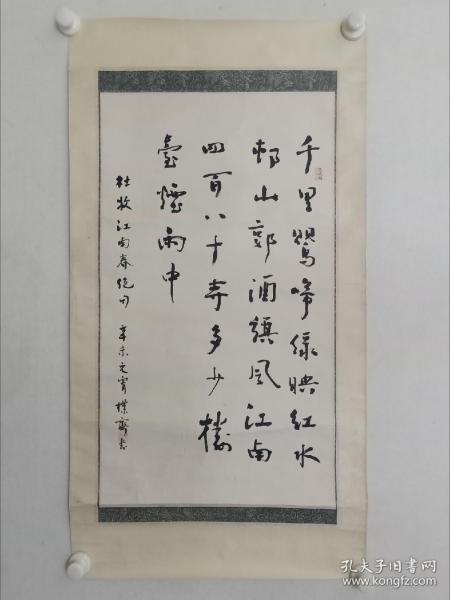 千里鶯啼綠映紅水
邨山郭酒旗風江南
四百八十寺多少樓
臺煙雨中
杜牧江南春絕句 辛未元宵樸齋書
孔夫子旧书网
www.kongfz.com